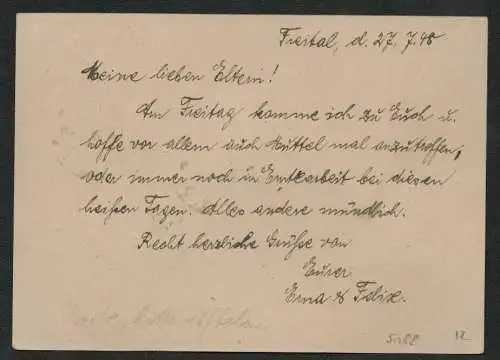 Freital, d. 27. 7. 48
Meine lieben Eltern!
Am Freitag komme ich zu Euch u.
hoffe vor allem auch Muttel mal anzutreffen,
oder immer noch in Erntearbeit bei diesen
heißen Tagen. Alles andere mündlich.
Recht herzliche Grüße von
Eurer
Erna & Felix.
5188
12